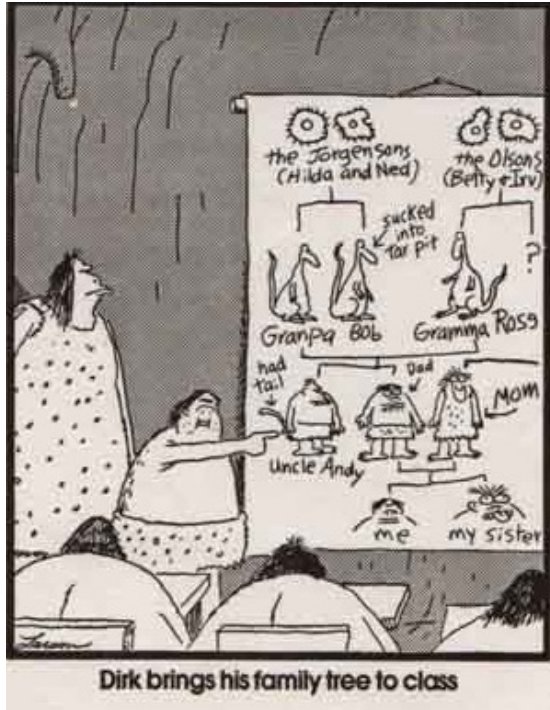 the Jorgensons
(Hilda and Ned)
the Olsons
(Betty + Irv)
sucked
into
Tar pit
?
Granpa Bob
Gramma Ross
had
tail
Dad
MOM
Uncle Andy
me
my sister
Larson
Dirk brings his family tree to class